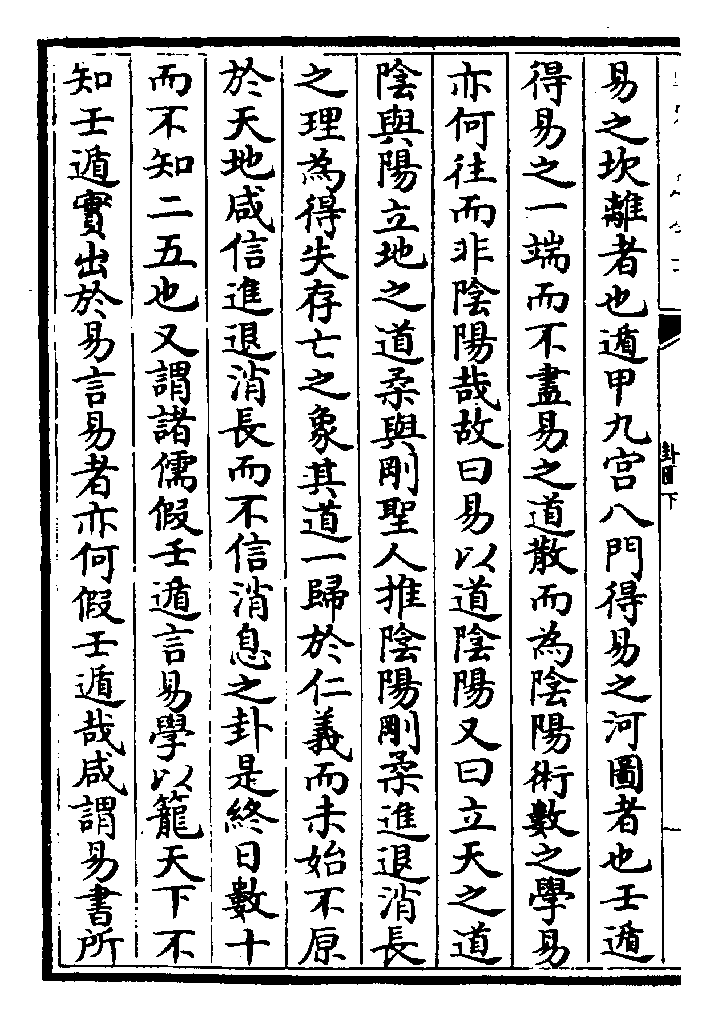 易之坎離者也遁甲九宫八門得易之河圖者也壬遁
得易之一端而不盡易之道散而為陰陽術數之學易
亦何往而非陰陽哉故曰易以道陰陽又曰立天之道
陰與陽立地之道柔與剛聖人推陰陽剛柔進退消長
之理為得失存亡之象其道一歸於仁義而未始不原
於天地咸信進退消長而不信消息之卦是終日數十
而不知二五也又謂諸儒假壬遁言易學以籠天下不
知壬遁實出於易言易者亦何假壬遁哉咸謂易書所
卦圖下